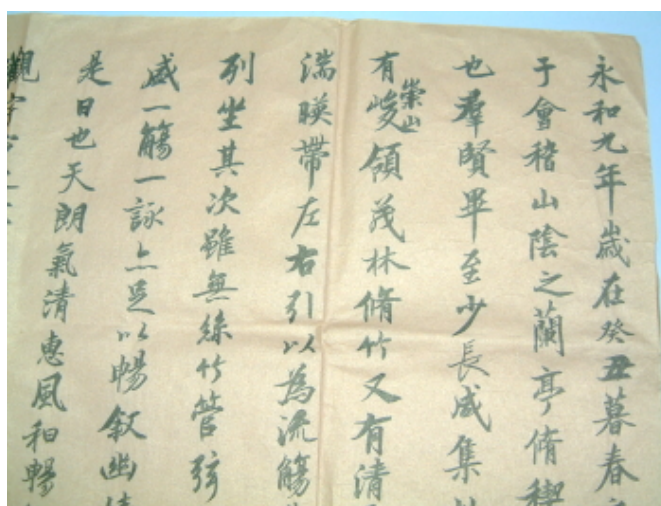 永和九年歲在癸丑暮春
于會稽山陰之蘭亭脩稧
也羣賢畢至少長咸集
有崇山峻領茂林脩竹又有清
湍暎帶左右引以為流觴
列坐其次雖無絲竹管弦
盛一觴一詠亦足以暢敘幽情
是日也天朗氣清惠風和暢
觀宇